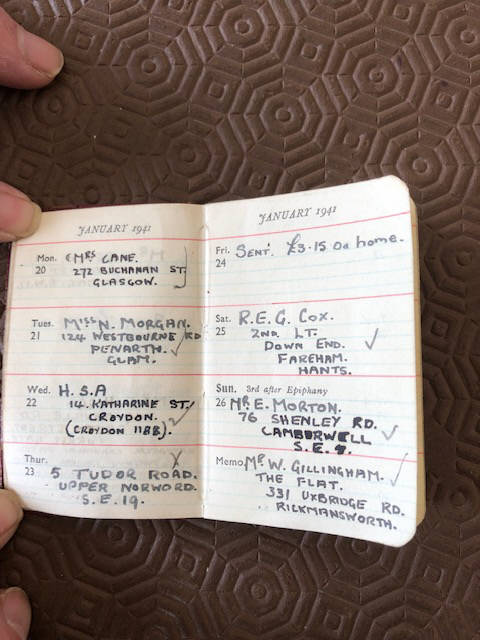 JANUARY 1941
Mon. MRS CANE.
20 272 BUCHANAN ST.
GLASGOW.
Tues. MISS N. MORGAN.
21 124 WESTBOURNE RD
PENARTH.
GLAM.
Wed. H.S.A
22 14. KATHARINE ST.
CROYDON.
(CROYDON 1188).
Thur.
23 5 TUDOR ROAD.
UPPER NORWORD.
S.E.19.
JANUARY 1941
Fri. SENT. £3-15 0d home.
24
Sat. R.E.G. COX.
25 2ND. LT.
DOWN END.
FAREHAM.
HANTS.
Sun. 3rd after Epiphany
26 MR. E. MORTON.
76 SHENLEY RD.
CAMBORWELL
S.E.
Memo MR. W. GILLINGHAM.
THE FLAT.
331 UXBRIDGE RD.
RICKMANSWORTH.